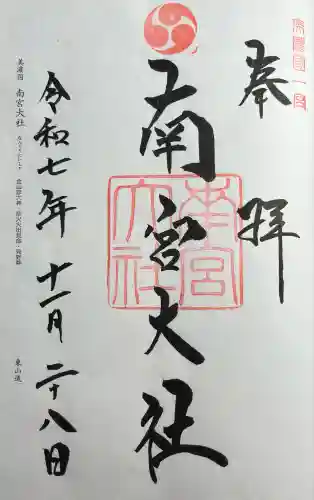 奉拝
美濃國一宮
南宮大社
南宮大社
令和七年 十一月 二十八日
美濃国 南宮大社
東山道